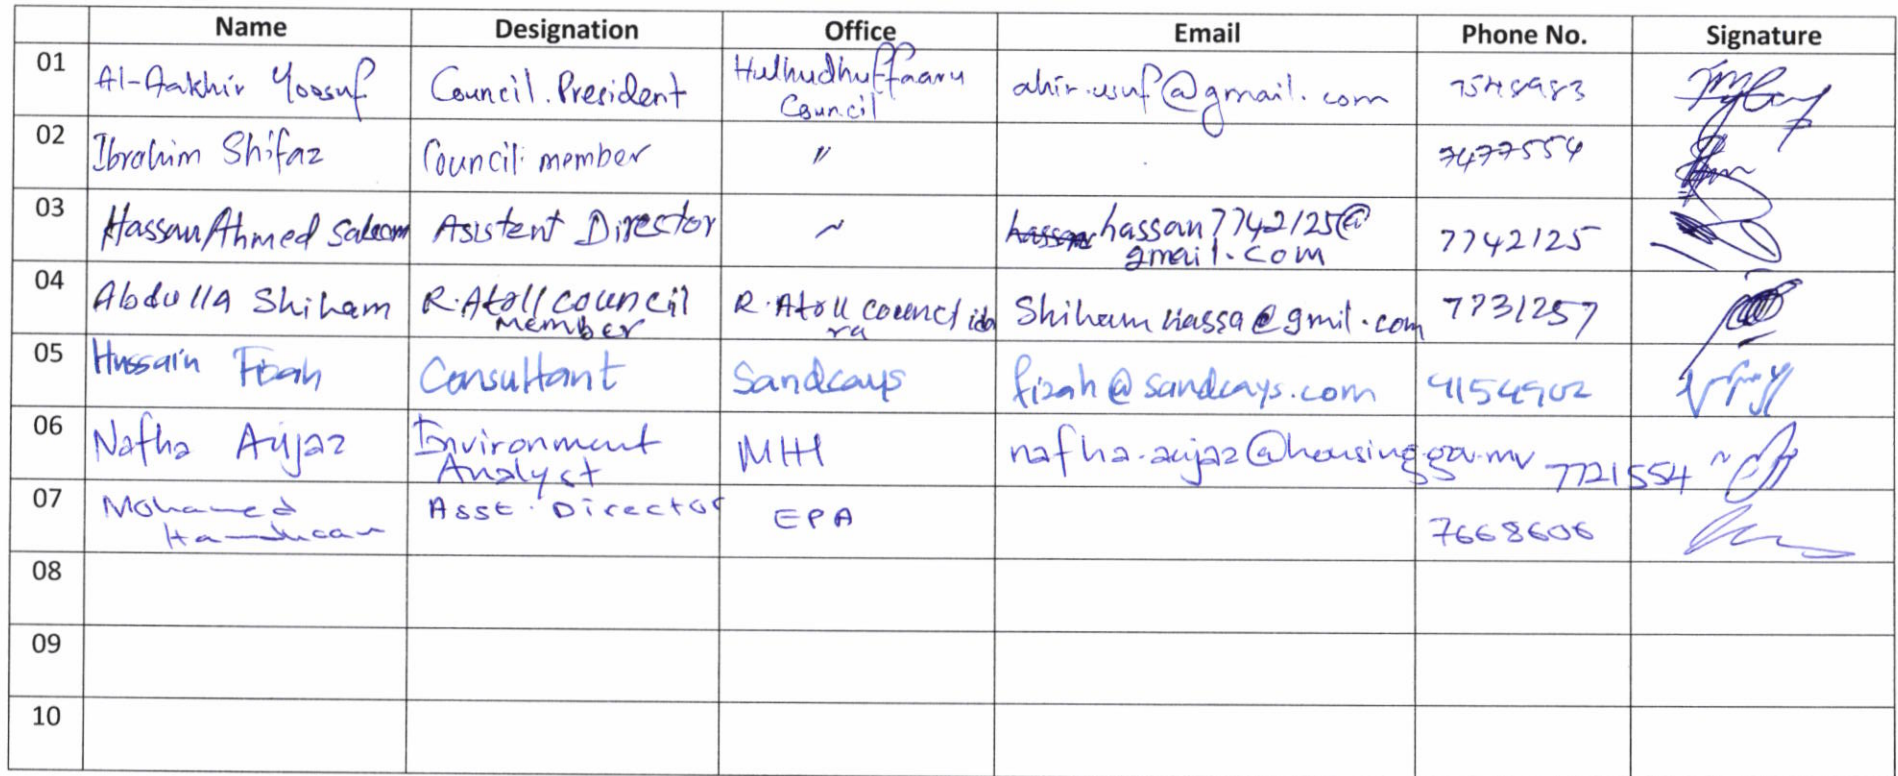 Name Designation Office Email Phone No. Signature
01 Al-Aakhir Yoosuf Council. President Hulhudhuffaaru Council ahir.usuf@gmail.com 7548983
02 Ibrahim Shifaz Council member " 7477554
03 Hassan Ahmed Saleem Asistent Director ~ hassan7742125@gmail.com 7742125
04 Abdulla Shiham R.Atoll council member R.Atoll Shiham hassa@gmil.com 7731257
05 Hussain Fizah Consultant Sandcays fizah@sandcays.com 9154902
06 Nafha Aujaz Environment Analyst MHI nafha.aujaz@housing.gov.mv 7721554
07 Mohamed Asst. Director EPA 7668606
08
09
10